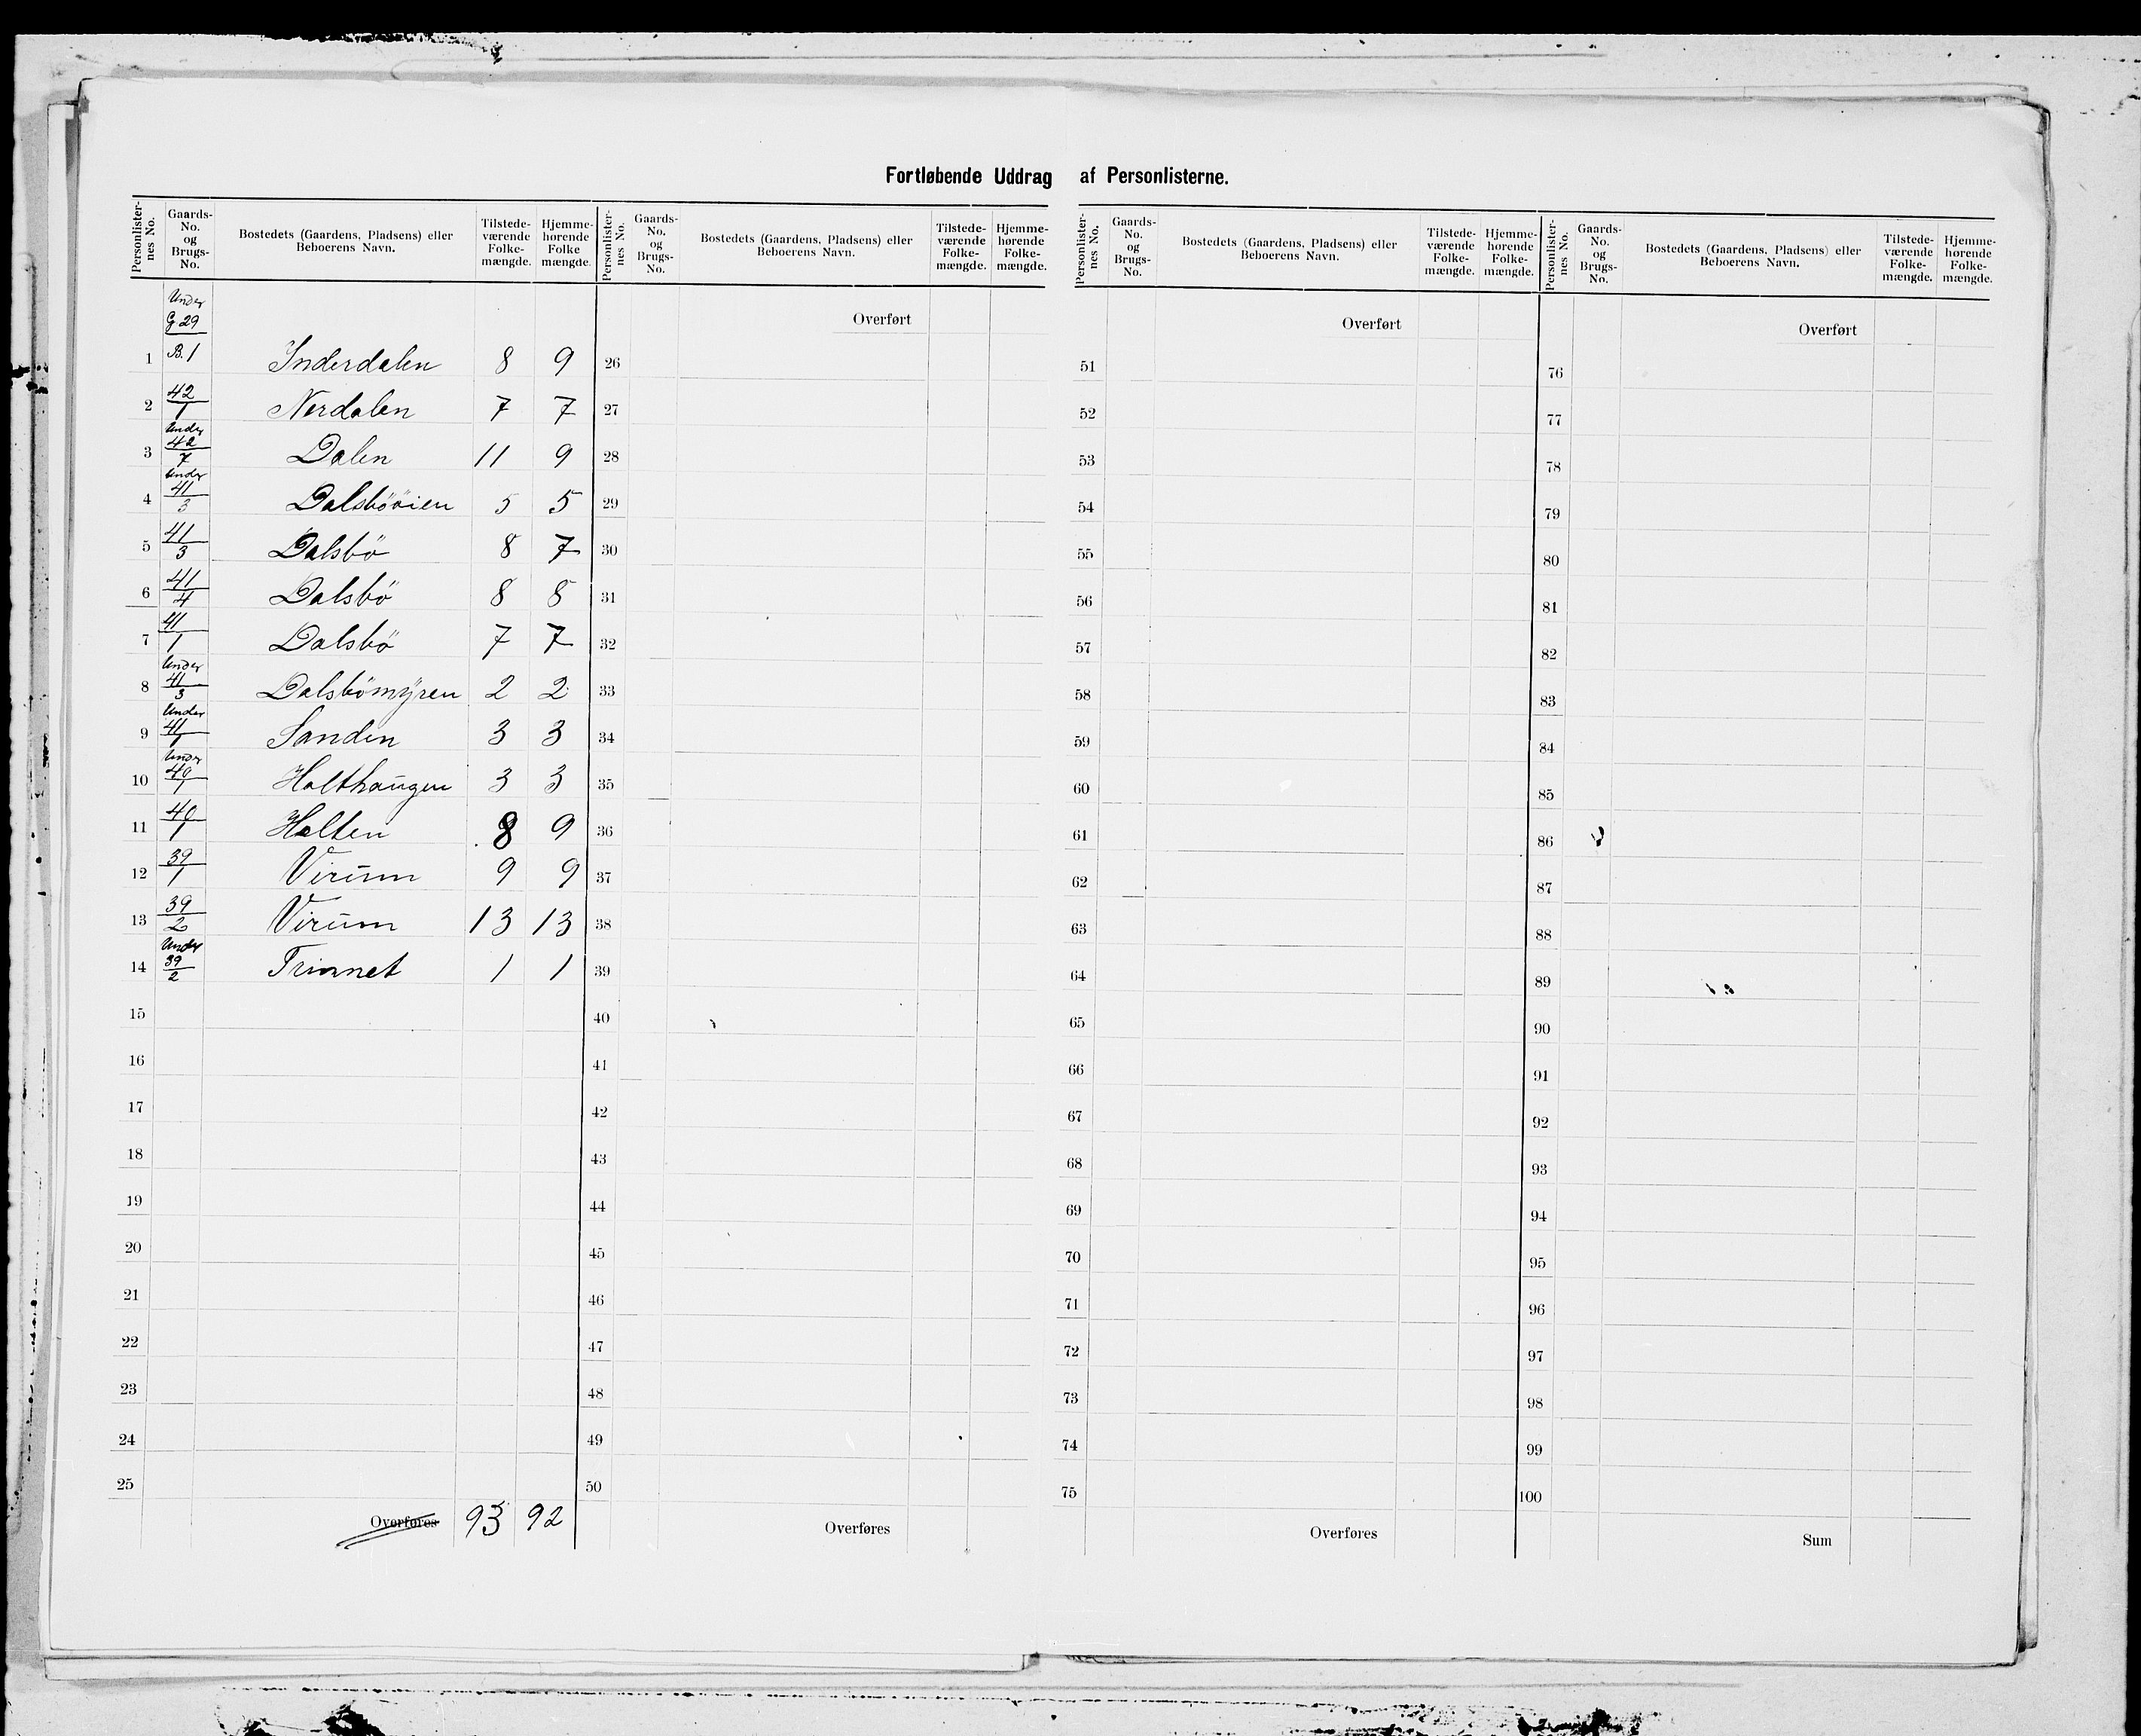 Fortløbende Uddrag af Personlisterne.
Personlister-nes No. | Gaards-No. og Brugs-No. | Bostedets (Gaardens, Pladsens) eller Beboerens Navn. | Tilstede-værende Folke-mængde. | Hjemme-hørende Folke mængde.
Under G. 29
1 B. 1 Inderdalen 8 9
2 42/1 Nerdalen 7 7
3 Under 42/7 Dalen 11 9
4 Under 41/3 Dalsbööien 5 5
5 41/3 Dalsbö 8 7
6 41/4 Dalsbö 8 8
7 41/1 Dalsbö 7 7
8 Under 41/3 Dalsbömyren 2 2
9 Under 41/1 Sanden 3 3
10 Under 40/1 Holthaugen 3 3
11 40/1 Holten 8 9
12 39/1 Virum 9 9
13 39/2 Virum 13 13
14 Under 39/2 Trinnet 1 1
15
16
17
18
19
20
21
22
23
24
25
Overføres 93 92
Personlister-nes No. | Gaards-No. og Brugs-No. | Bostedets (Gaardens, Pladsens) eller Beboerens Navn. | Tilstede-værende Folke-mængde. | Hjemme-hørende Folke-mængde.
Overført
26
27
28
29
30
31
32
33
34
35
36
37
38
39
40
41
42
43
44
45
46
47
48
49
50
Overføres
Personlister-nes No. | Gaards-No. og Brugs-No. | Bostedets (Gaardens, Pladsens) eller Beboerens Navn. | Tilstede-værende Folke-mængde. | Hjemme-hørende Folke-mængde.
Overført
51
52
53
54
55
56
57
58
59
60
61
62
63
64
65
66
67
68
69
70
71
72
73
74
75
Overføres
Personlister-nes No. | Gaards-No. og Brugs-No. | Bostedets (Gaardens, Pladsens) eller Beboerens Navn. | Tilstede-værende Folke-mængde. | Hjemme-hørende Folke-mængde.
Overført
76
77
78
79
80
81
82
83
84
85
86
87
88
89
90
91
92
93
94
95
96
97
98
99
100
Sum